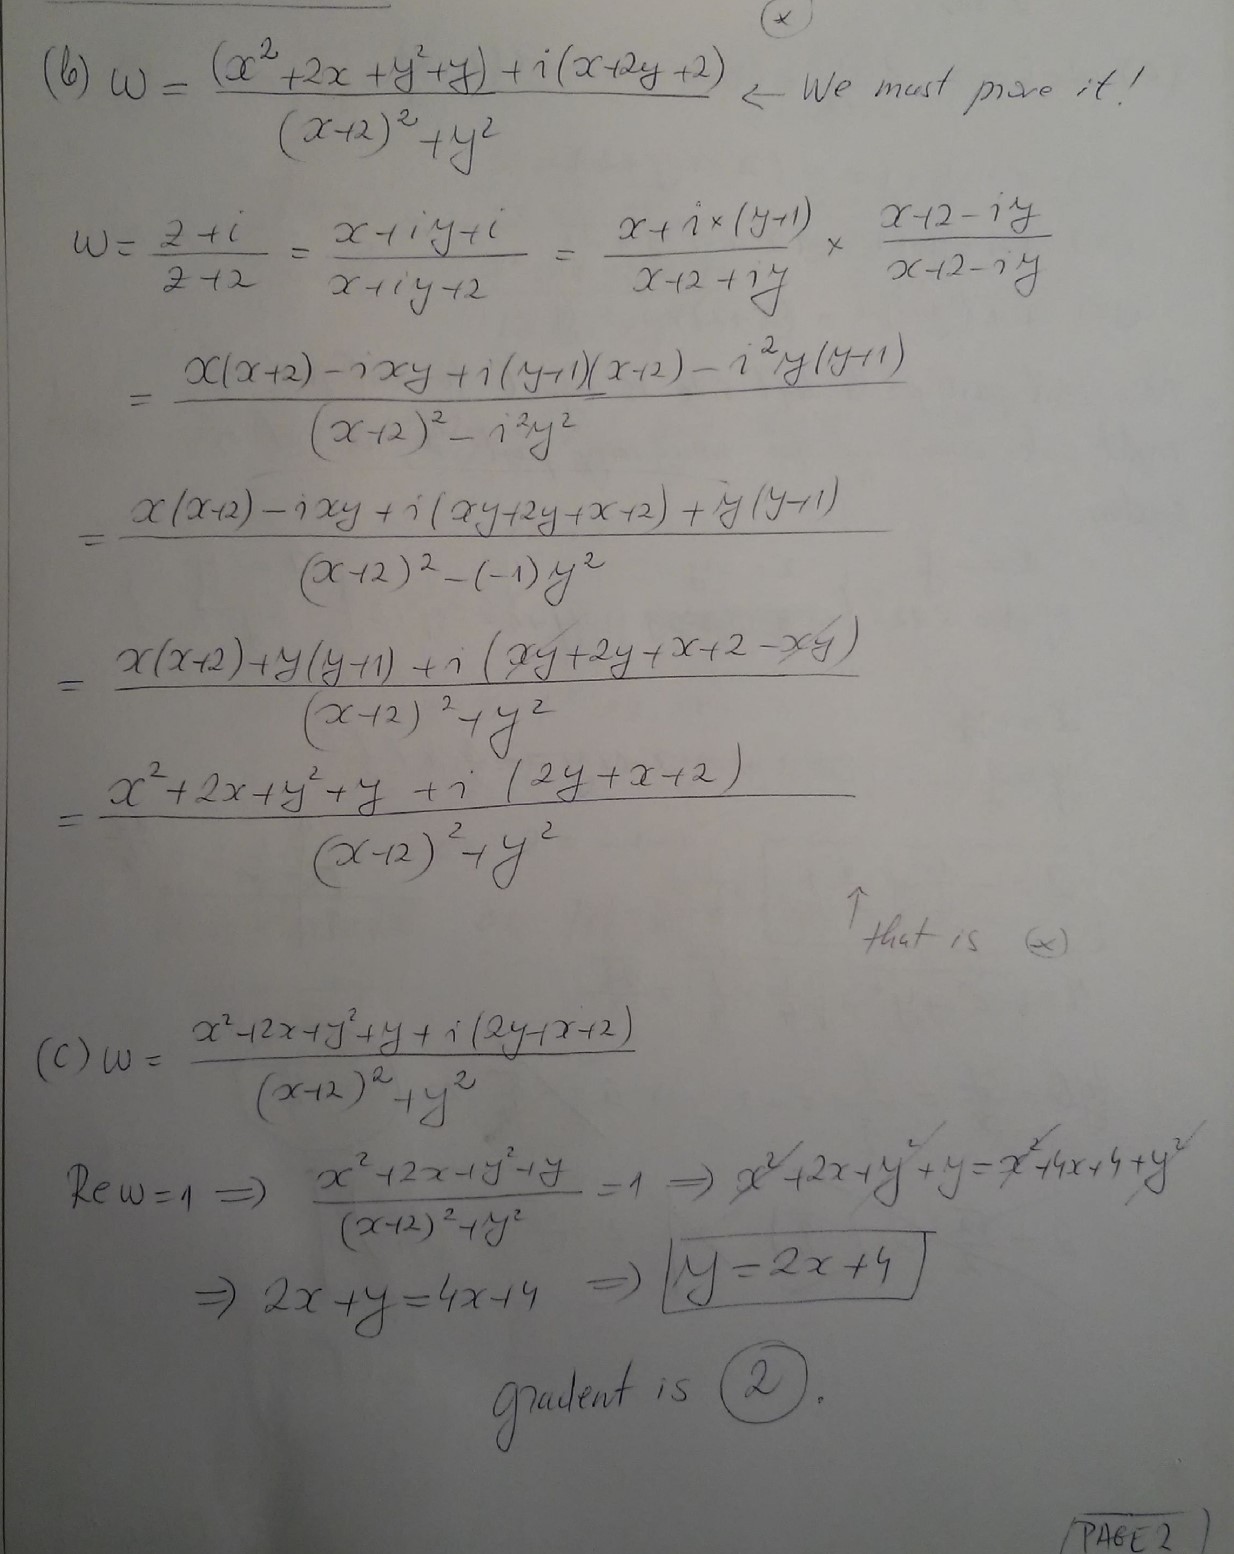 (*)
(b) w = ((x²+2x+y²+y)+i(x+2y+2))/((x+2)²+y²) ← We must prove it!
w = (z+i)/(z+2) = (x+iy+i)/(x+iy+2) = (x+i×(y+1))/(x+2+iy) × (x+2-iy)/(x+2-iy)
= (x(x+2)-ixy+i(y+1)(x+2)-i²y(y+1))/((x+2)²-i²y²)
= (x(x+2)-ixy+i(xy+2y+x+2)+y(y+1))/((x+2)²-(-1)y²)
= (x(x+2)+y(y+1)+i(xy+2y+x+2-xy))/((x+2)²+y²)
= (x²+2x+y²+y+i(2y+x+2))/((x+2)²+y²)
↑ that is (*)
(c) w = (x²+2x+y²+y+i(2y+x+2))/((x+2)²+y²)
Re w=1 ⇒ (x²+2x+y²+y)/((x+2)²+y²) = 1 ⇒ x²+2x+y²+y=x²+4x+4+y²
⇒ 2x+y=4x+4 ⇒ y=2x+4
gradent is 2.
PAGE 2